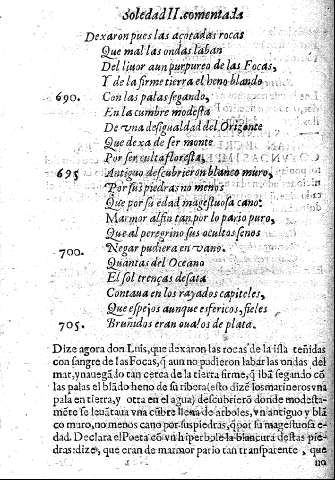 Soledad II. comentada
Dexaron pues las açotadas rocas
Que mal las ondas laban
Del liuor aun purpureo de las Focas,
Y de la firme tierra el heno blando
690. Con las palas segando,
En la cumbre modesta
De vna desigualdad del Orizonte
Que dexa de ser monte
Por ser culta floresta,
695 Antiguo descubrieron blanco muro,
Por sus piedras no menos
Que por su edad magestuosa cano:
Marmor alfin tan por lo pario puro,
Que al peregrino sus ocultos senos
700. Negar pudiera en vano.
Quantas del Oceano
El sol trenças desata
Contaua en los rayados capiteles,
Que espejos aunque esfericos, fieles
705. Bruñidos eran oualos de plata.
Dize agora don Luis, que dexaron las rocas de la isla teñidas
con sangre de las Focas, q̃ aun no pudieron labar las ondas del
mar, y nauegãdo tan cerca de la tierra firme, q̃ ibã segando cõ
las palas el blãdo heno de su ribera (esto dizẽ los marineros vna
pala en tierra, y otra en el agua) descubrierõ donde modesta-
mẽte se leuãtaua vna cũbre llena de arboles, vn antiguo y blã
co muro, no menos cano por sus piedras, q̃ por su magestuosa e-
dad. Declara el Poeta cõ vn hiperbole la blancura destas pie-
dras: dize, que eran de marmor pario tan transparente, que
no